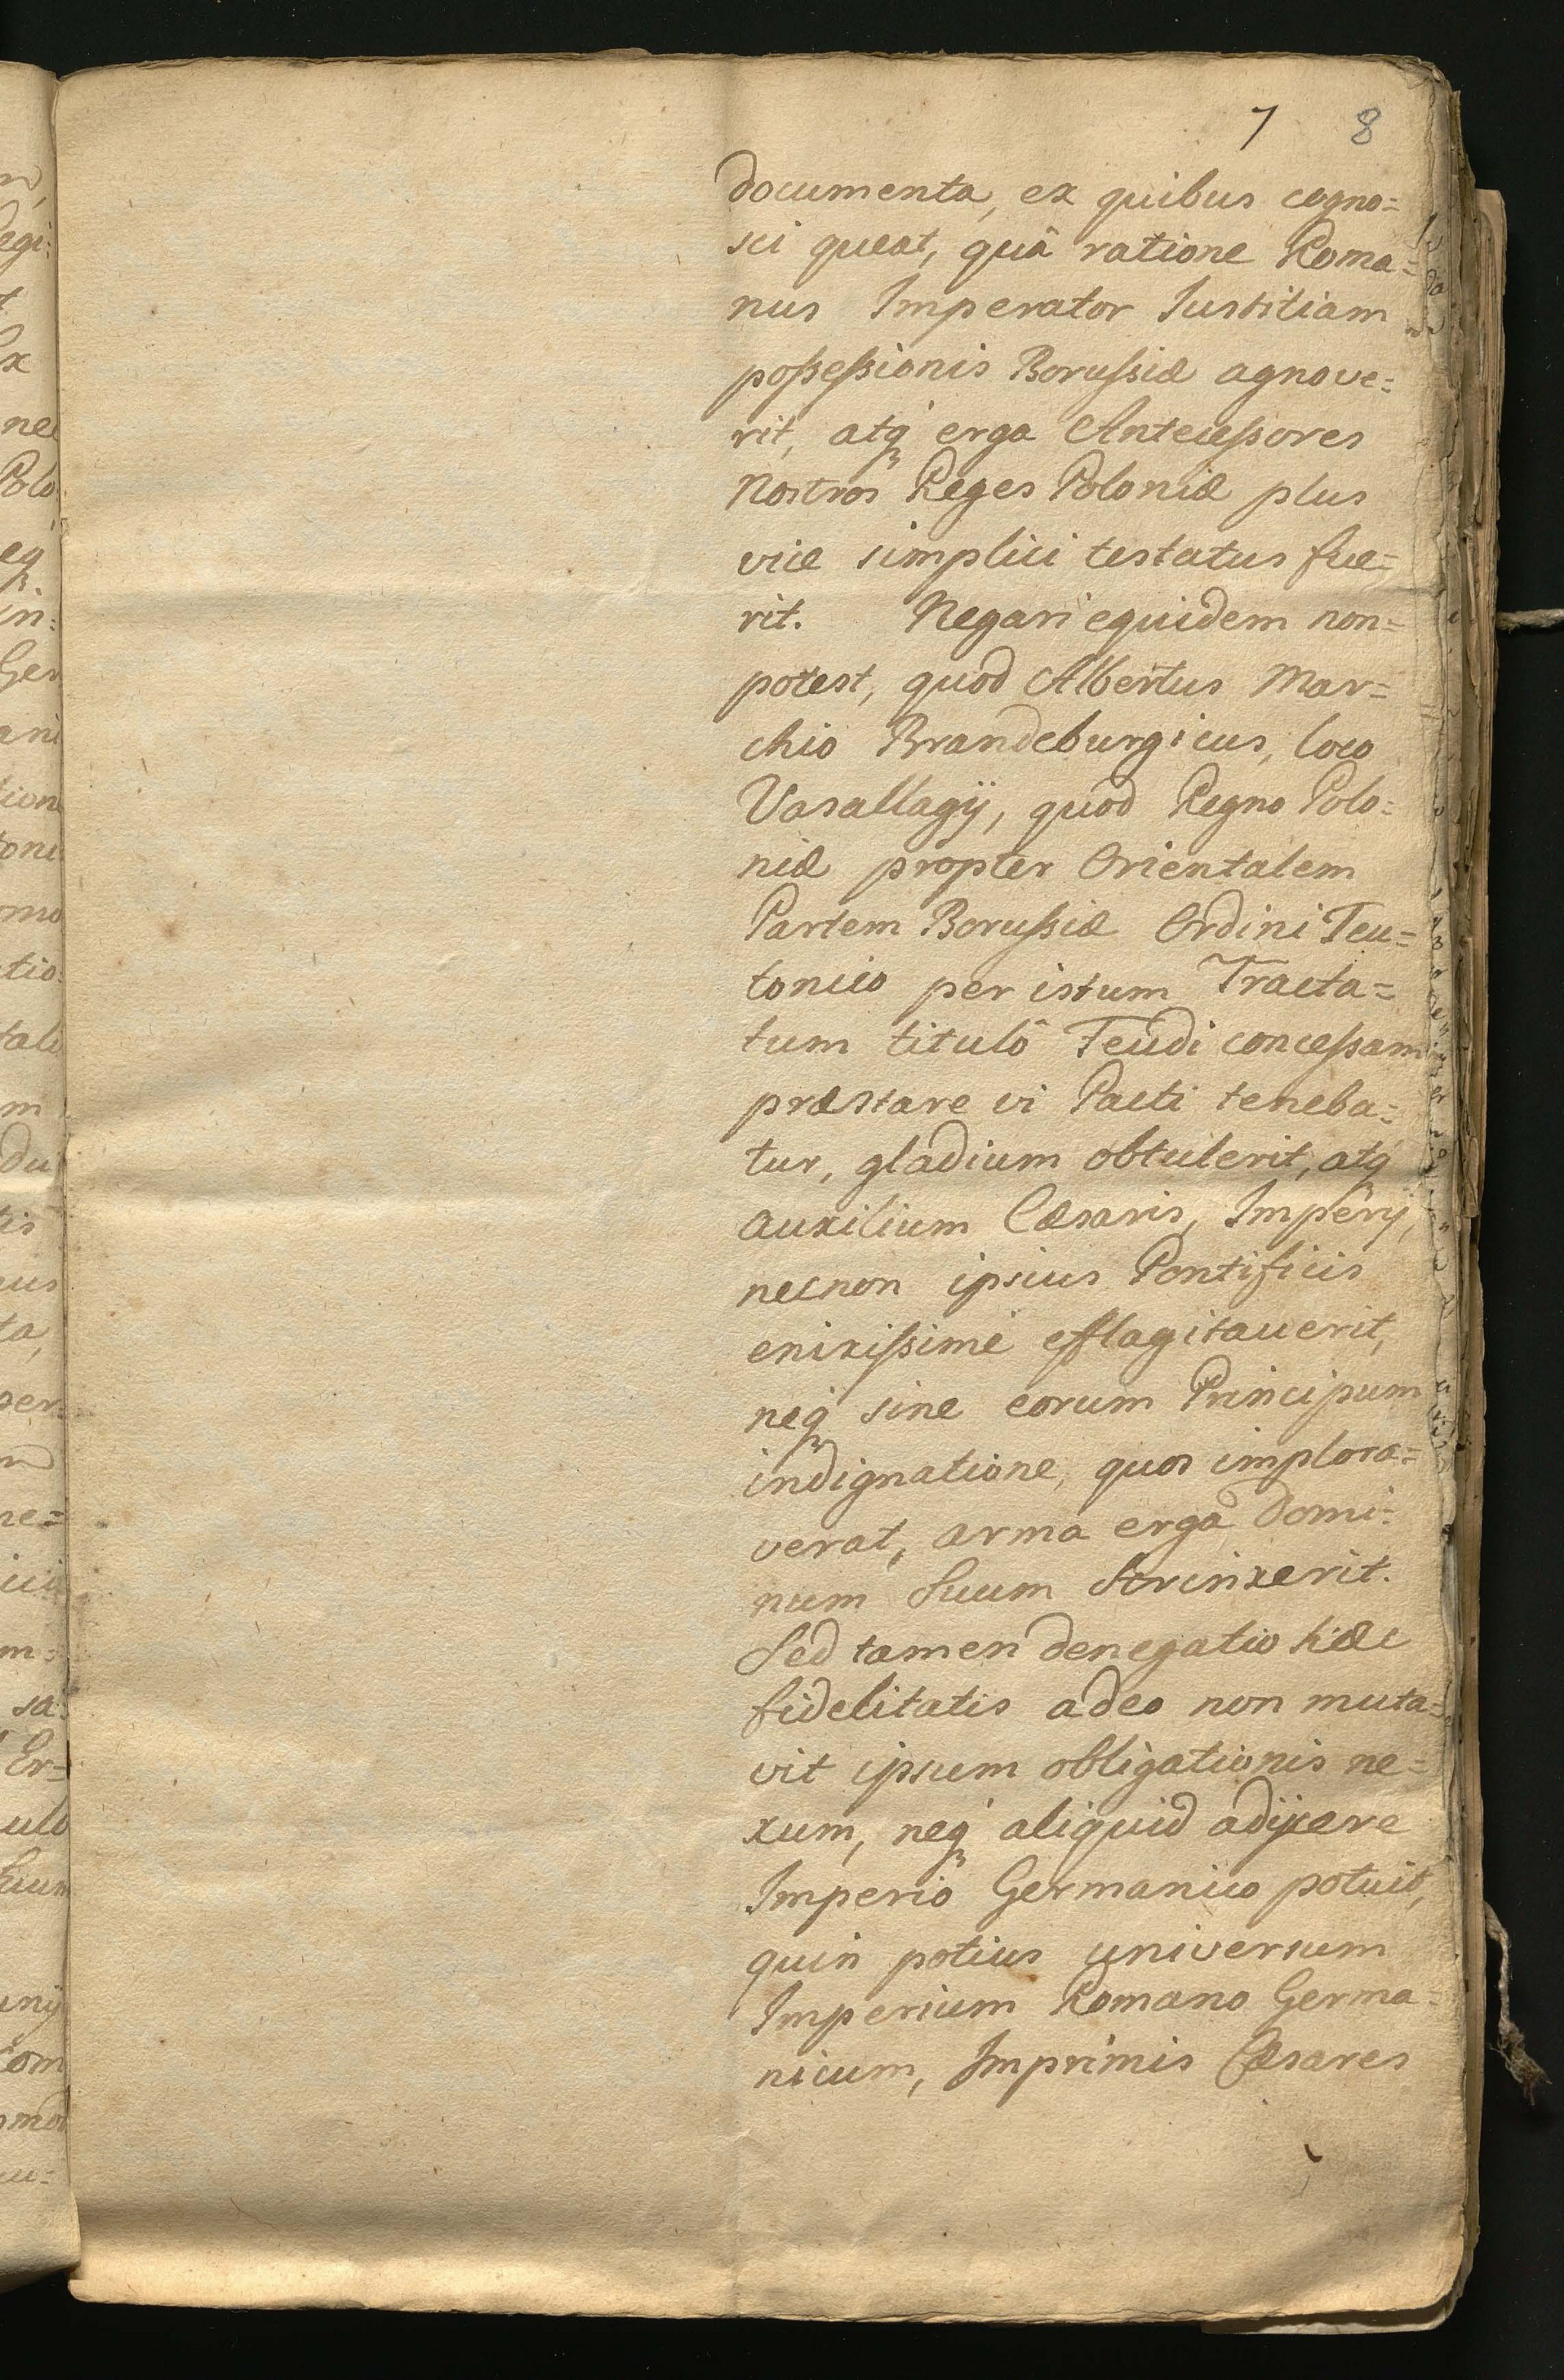 7 8
documenta, ex quibus cogno=
sci queat, quâ ratione Roma=
nus Imperator Iustitiam
poſseſsionis Boruſsiæ agnove=
rit, atq́ erga Anteceſsores
Nostros Reges Poloniæ plus
vice simplici testatus fue=
rit. Negari equidem non=
potest, quod Albertus Mar=
chio Brandeburgicus, loco
Vasallagij, quod Regno Polo=
niæ propter Orientalem
Partem Boruſsiæ Ordini Teu=
tonico per istum Tracta=
tum titulô Feudi conceſsam
præstare vi Pacti teneba=
tur, gladium obtulerit, atq́
auxilium Cæsaris, Imperij,
necnon ipsius Pontificis
enixiſsimè efflagitauerit,
neq́ sine eorum Principum
indignatione, quos implora=
verat, arma erga Domi=
num Suum Strinxerit.
Sed tamen denegatio hæc
fidelitatis adeo non muta=
vit ipsum obligationis ne=
xum, neq́ aliquid adijcere
Imperio Germanico potuit,
quin potius universum
Imperium Romano Germa=
nicum, Imprimis Cæsares